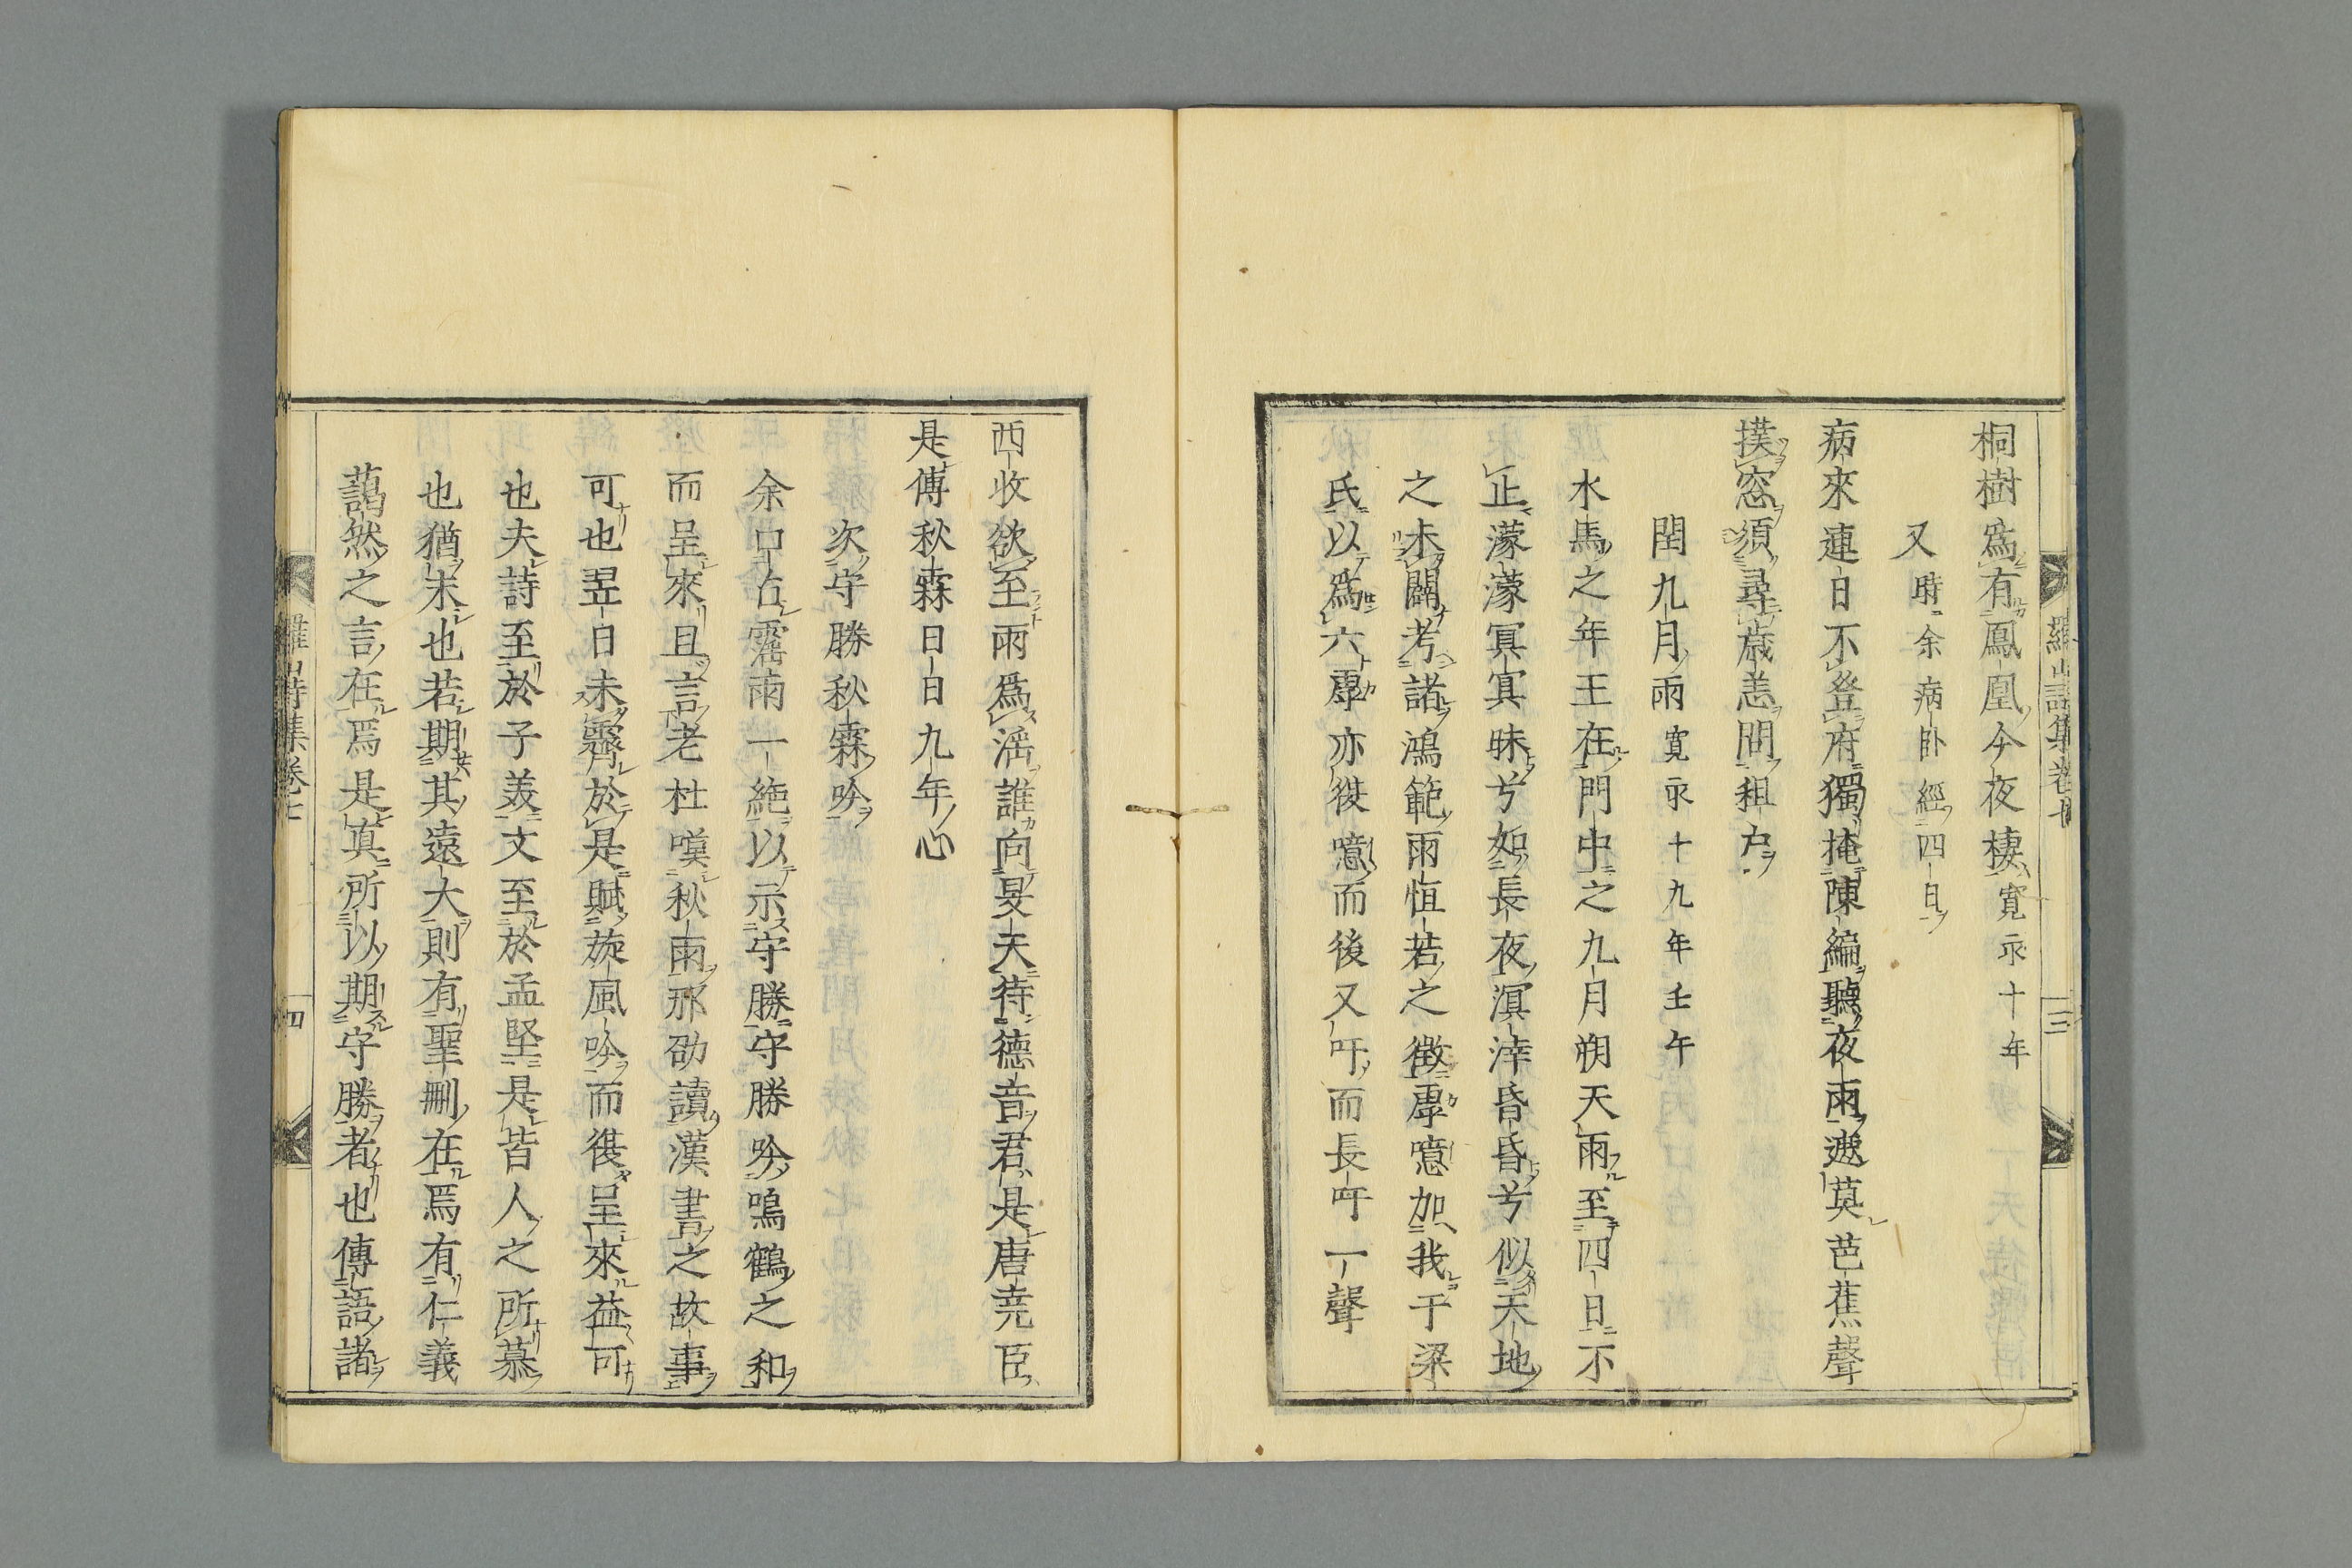 桐樹爲有鳳凰今夜棲寛永十年
又時余病卧經四日
病來連日不登府獨掩陳編聽夜雨遮莫芭蕉聲
撲窓須尋歳恙問租戸
閏九月雨寛永十九年壬午
水馬之年王在門中之九月朔天雨至四日不
止濛濛冥冥昧兮如長夜溟涬昏昏兮似天地
之未闢考諸鴻範雨恒若之徴辱噫加我于梁
氏以爲六辱亦從噫而後又吁而長吁一聲
羅山詩集卷七
三
西收欲至雨爲滛誰向旻天待德音君是唐堯臣
是傅秋霖日日九年心
次守勝秋霖吟
余口占霪雨一絶以示守勝守勝吟鳴鶴之和
而呈來且言老杜嘆秋雨那劭讀漢書之故事
可也翌日未霽於是賦旋風吟而從呈來益可
也夫詩至於子美文至於孟堅是皆人之所慕
也猶未也若期其遠大則有聖刪在焉有仁義
藹然之言在焉是眞所以期守勝者也傳語諸
羅山詩集卷七
四